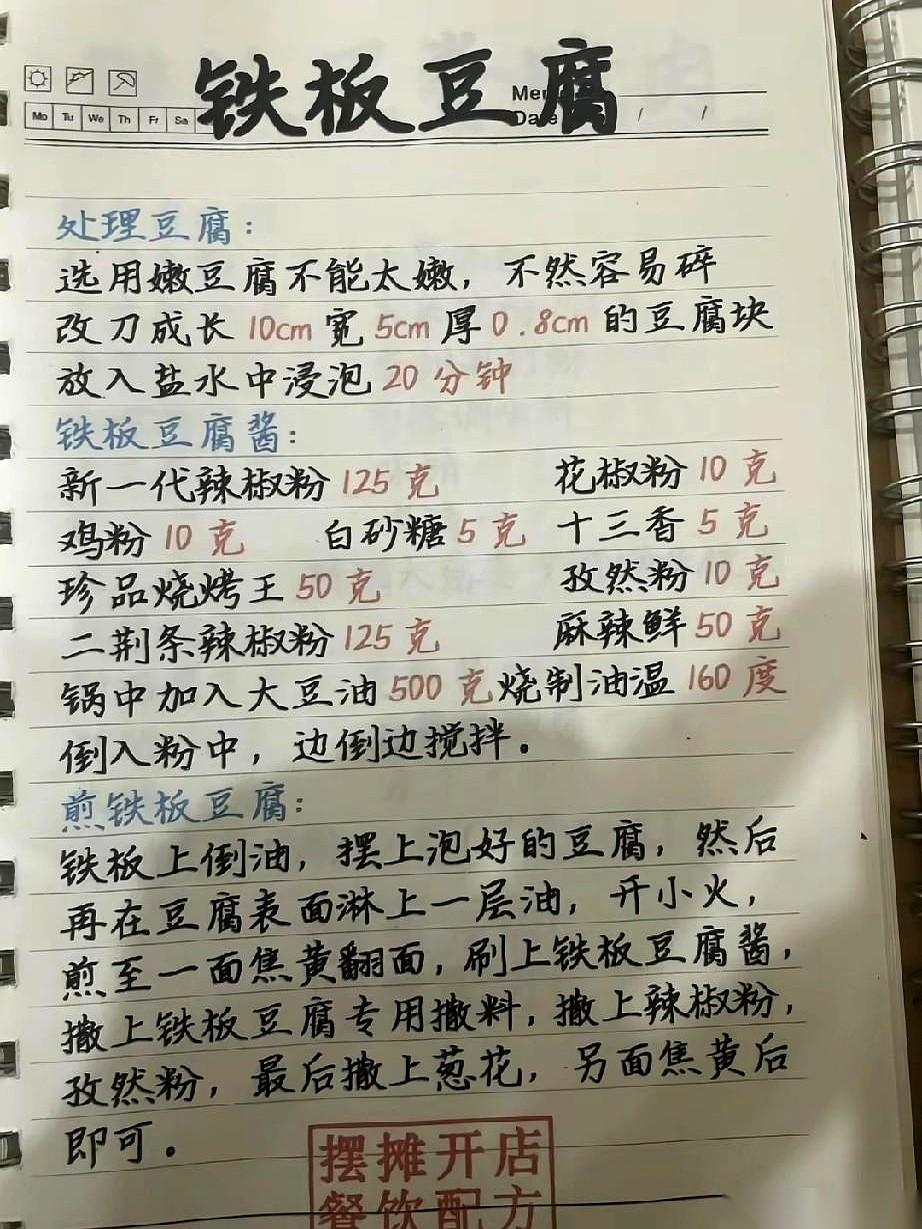 铁板豆腐
Mo Tu We Th Fr Sa
处理豆腐:
选用嫩豆腐不能太嫩，不然容易碎
改刀成长10cm宽5cm厚0.8cm的豆腐块
放入盐水中浸泡20分钟
铁板豆腐酱:
新一代辣椒粉125克 花椒粉10克
鸡粉10克 白砂糖5克 十三香5克
珍品烧烤王50克 孜然粉10克
二荆条辣椒粉125克 麻辣鲜50克
锅中加入大豆油500克烧制油温160度
倒入粉中，边倒边搅拌。
煎铁板豆腐:
铁板上倒油，摆上泡好的豆腐，然后
再在豆腐表面淋上一层油，开小火，
煎至一面焦黄翻面，刷上铁板豆腐酱，
撒上铁板豆腐专用撒料，撒上辣椒粉，
孜然粉，最后撒上葱花，另面焦黄后
即可。
摆摊开店
餐饮配方